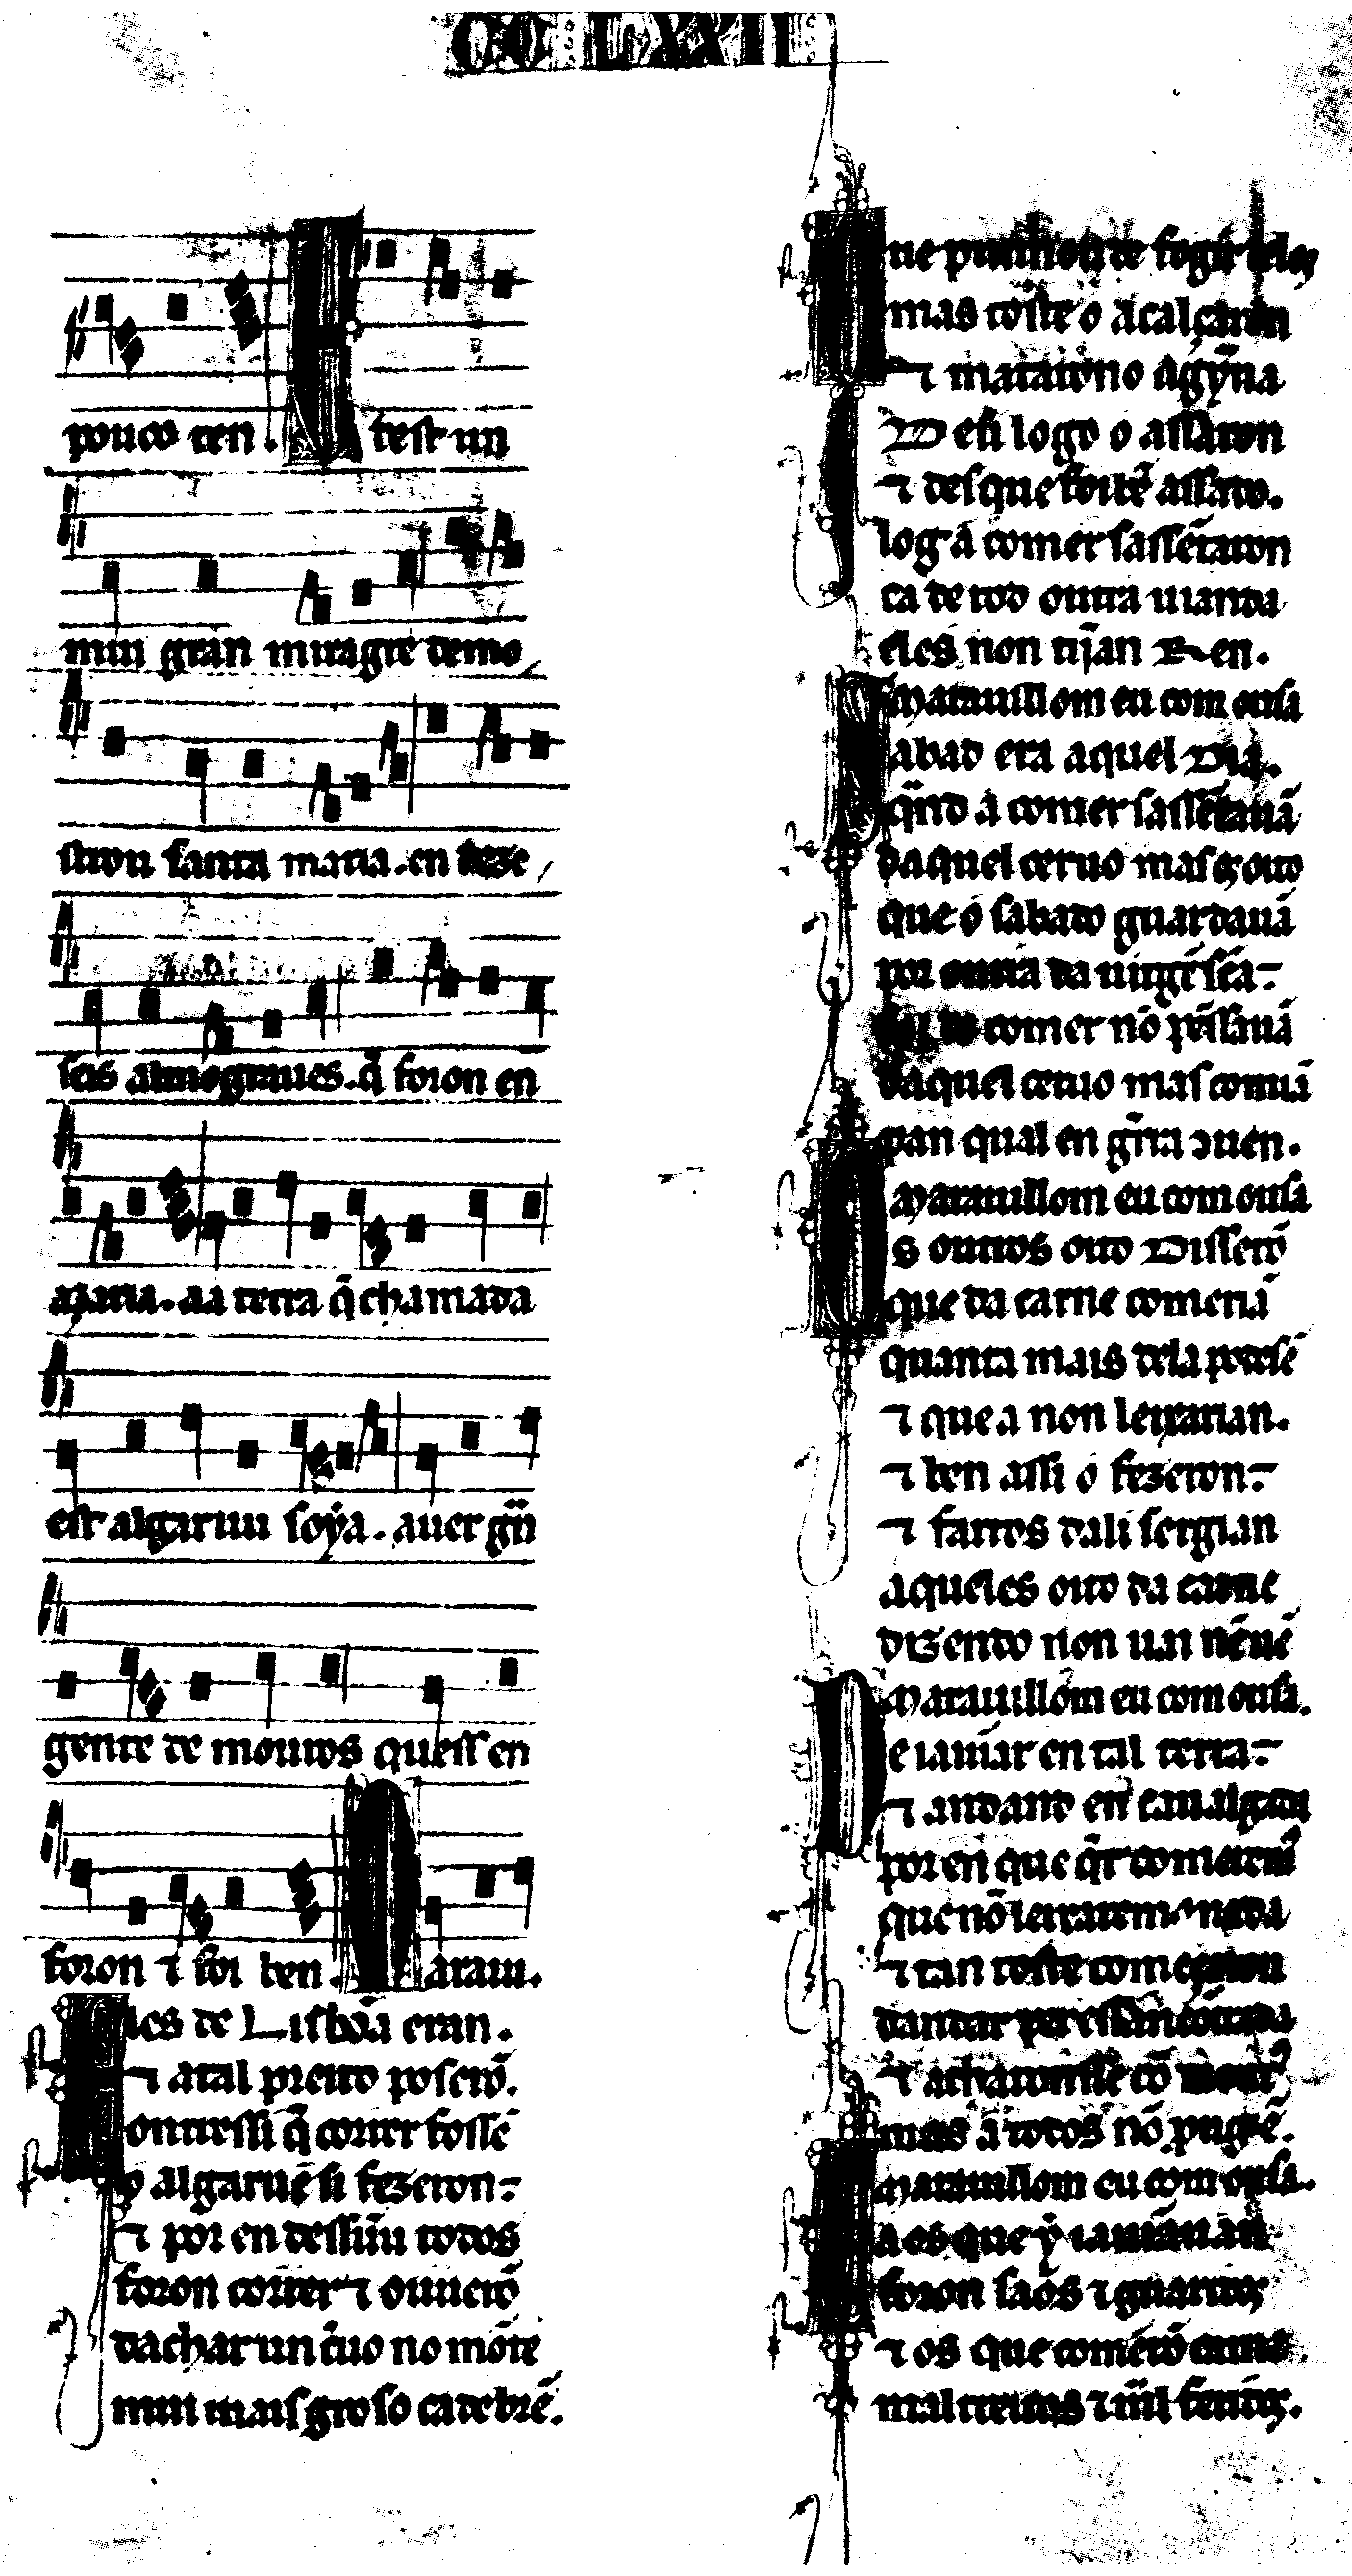 CC LXXII
pouco ten. E dest un
mui gran miragre demo
strou santa maria. en deze
seis almograues. q̄ foron en
azaria. aa terra q̄ chamada
est algaruu soýa. auer grā
gente de mouros quess en
foron ⁊ foi ben. Marauí.
Eles de Lisbõa eran.
⁊ atal preito poserõ.
ontressi q̄ correr fossē
o algaruē si fezeron
⁊ por en dessũu todos
foron correr ⁊ ouuerõ
dachar un c̄uo no mõte
mui mais grosso ca zebrē.
Que punnou de fogir deles
mas toste o acalçaron
⁊ matarono agỹna
Desi logo o assaron
⁊ des que foi bē assado.
log a comer sassētaron
ca de todo outra uianda
eles non tijan Ren.
Marauillom eu com ousa
Sabado era aquel dia.
q̄ndo a comer sassētauā
daquel ceruo mas os outo
que o sabado guardauā
por onrra da uirgē sc̄a
de comer nõ pēssauā
daquel ceruo mas comiā
pan qual en gr̄ra conuen.
Marauillom eu com ousa
Os outros outo disserõ
que da carne comeriā
quanta mais dela podessē
⁊ que a non leixarian.
⁊ ben assi o fezeron
⁊ fartos dali sergian
aqueles outo da carne
dizendo non uai nēuē
Marauillom eu com ousa.
De iaiũar en tal terra
⁊ andand en caualgada
poren que q̄r comeremos
que nõ leixaremos nada
⁊ tan toste começaron
dandar per essa encõtrada
⁊ acharonsse cõ mouros
mas a todos nõ prougē.
Marauillom eu com ousa.
Ca os que ẏ iaiũauan
foron sãos ⁊ guaridos
⁊ os que comerõ carne
mal treitos ⁊ mal feridos.